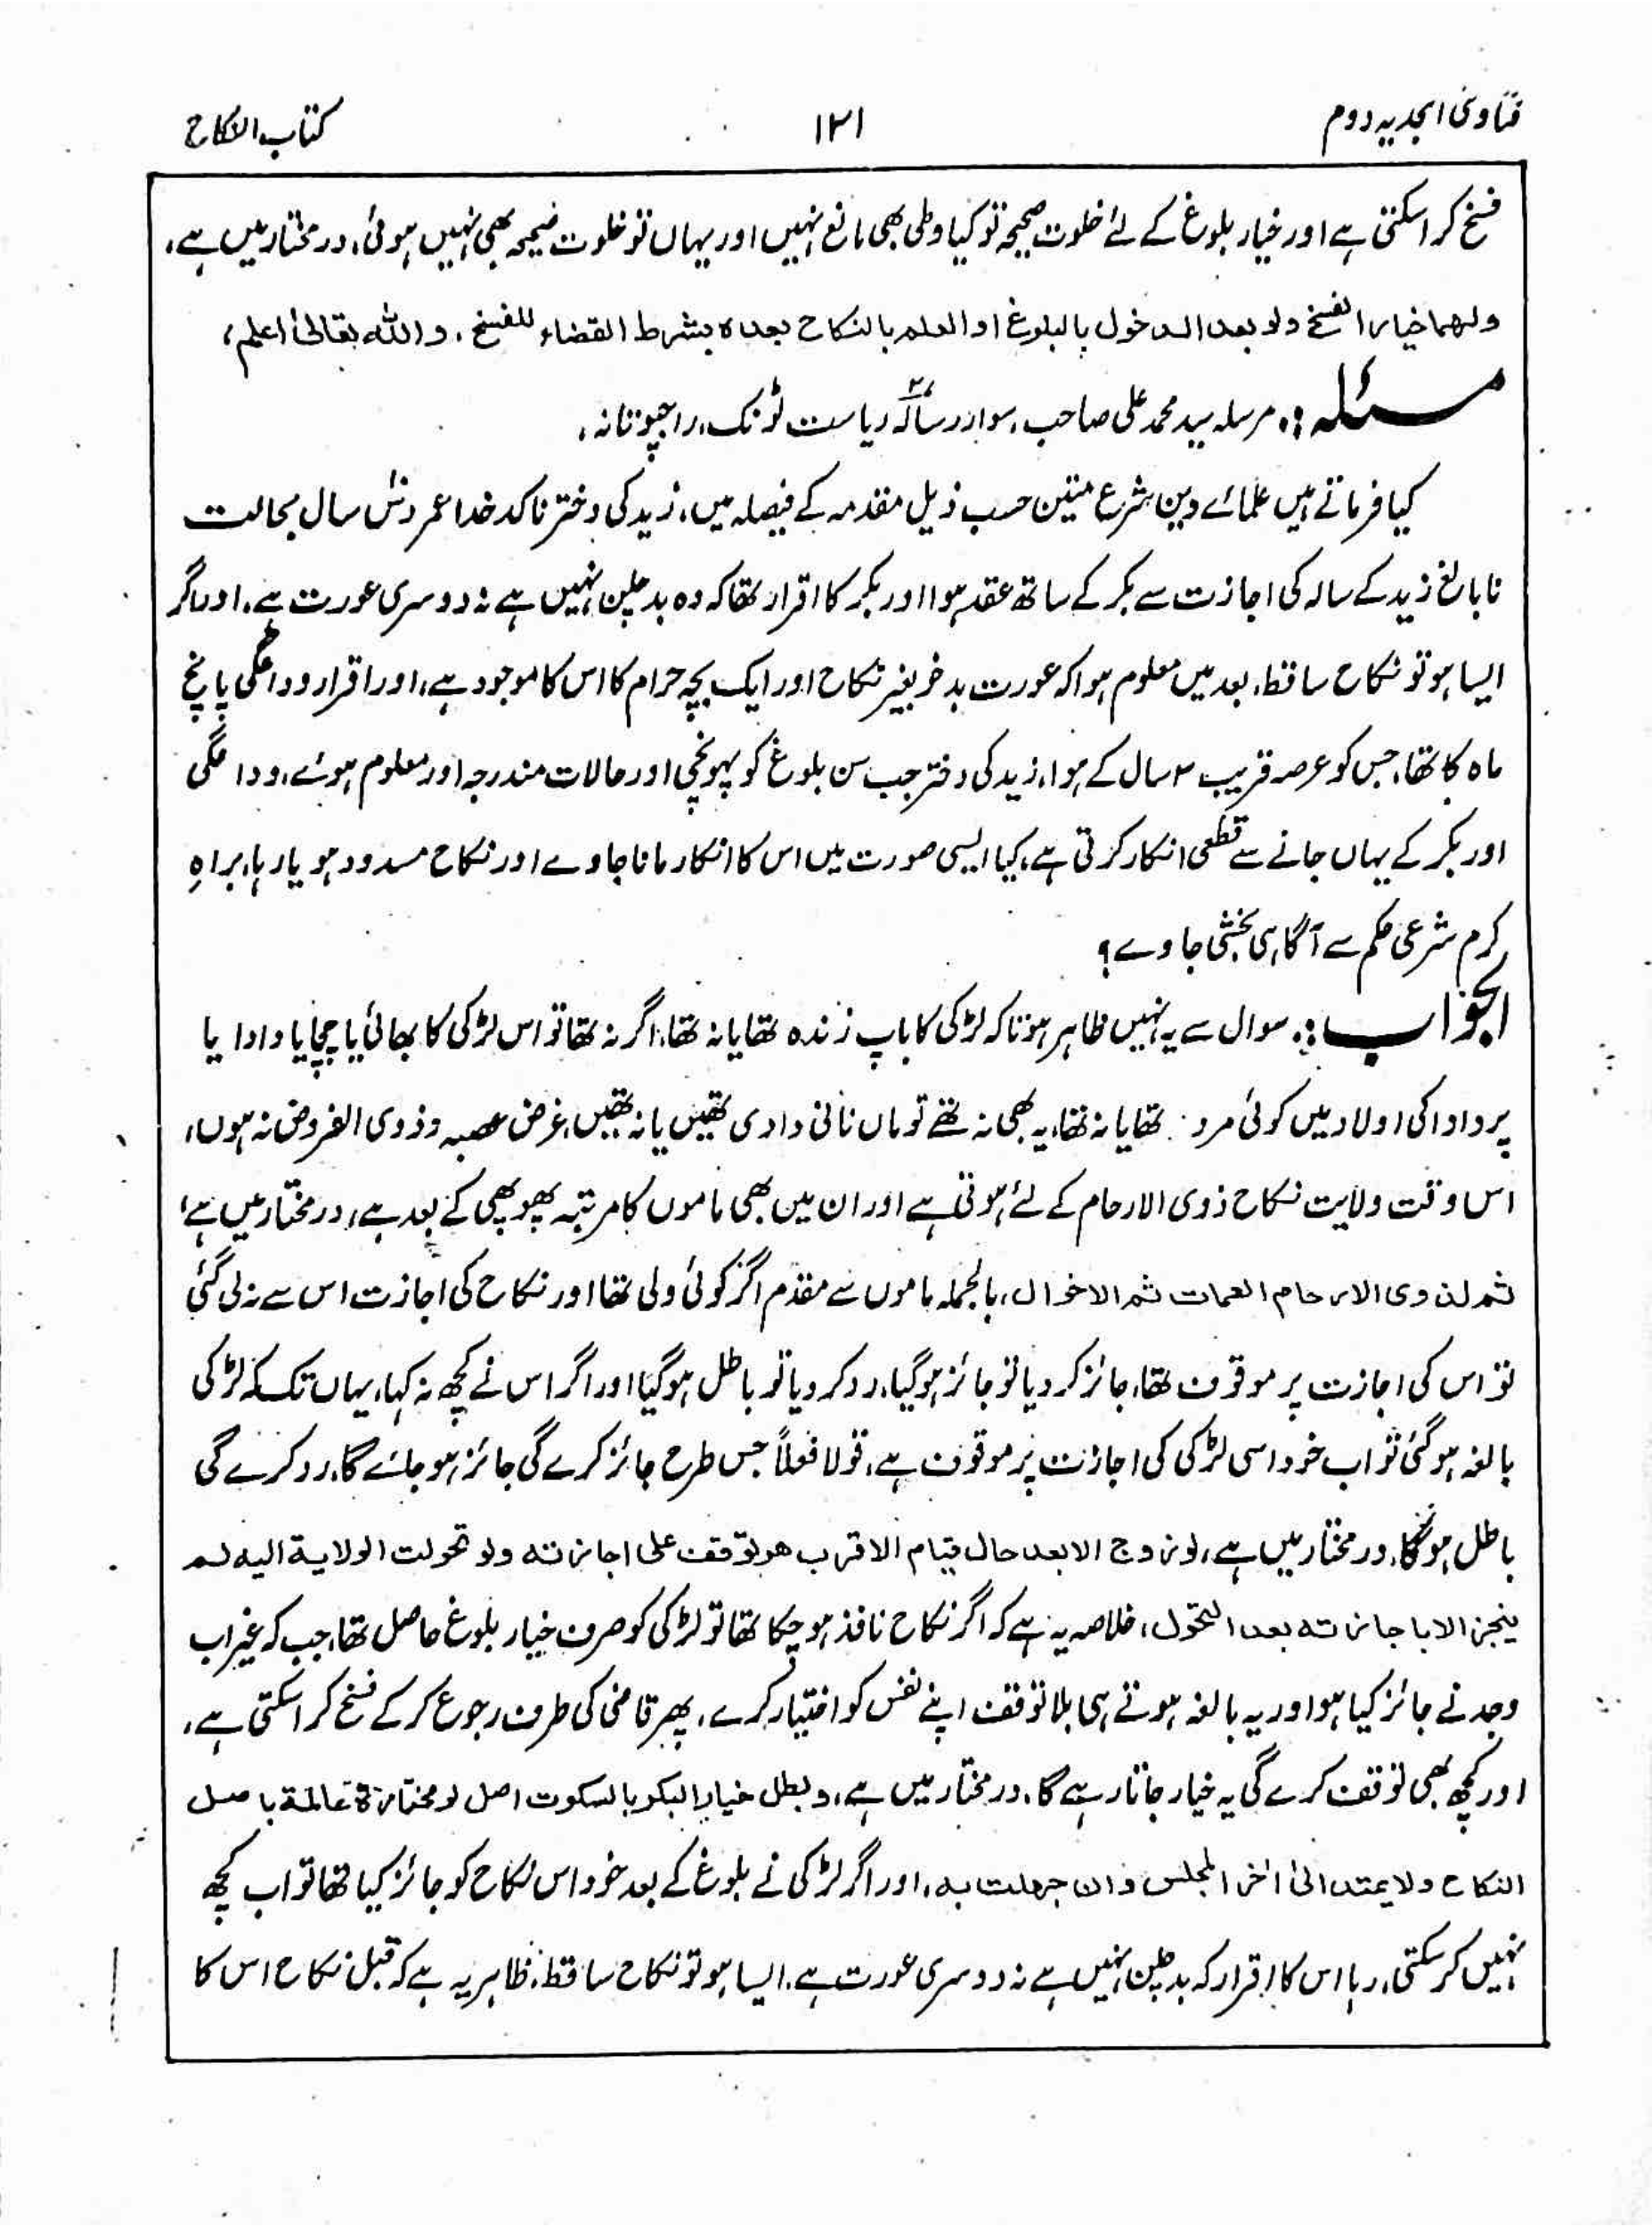 فتاویٰ امجدیہ دوم
۱۲۱
کتاب النکاح
فسخ کرا سکتی ہے اور خیار بلوغ کے لئے خلوت صحیحہ تو کیا وطی بھی مانع نہیں اور یہاں تو خلوت صحیحہ بھی نہیں ہوئی، در مختار میں ہے،
ولهما خيار الفسخ ولو بعد الدخول بالبلوغ او العلم بالنكاح بعده بشرط القضاء للفسخ، والله تعالىٰ اعلم،
مسئلہ:۔ مرسلہ سید محمد علی صاحب، سوار رسالہ ۲ ریاست ٹونک، راجپوتانہ،
کیا فرماتے ہیں علمائے دین شرع متین حسب ذیل مقدمہ کے فیصلہ میں، زید کی دختر ناکدخدا عمر دس سال بحالت
نابالغ زید کے سالہ کی اجازت سے بکر کے ساتھ عقد ہوا اور بکر کا اقرار تھا کہ وہ بدچلن نہیں ہے نہ دوسری عورت ہے، اور اگر
ایسا ہو تو نکاح ساقط، بعد میں معلوم ہوا کہ عورت بدخر بغیر نکاح اور ایک بچہ حرام کا اس کا موجود ہے، اور اقرار وداعگی پانچ
ماہ کا تھا، جس کو عرصہ قریب ۳ سال کے ہوا، زید کی دختر جب سن بلوغ کو پہونچی اور حالات مندرجہ اور معلوم ہوئے، وداعگی
اور بکر کے یہاں جانے سے قطعی انکار کرتی ہے، کیا ایسی صورت میں اس کا انکار مانا جاوے اور نکاح مسدود ہو یا رہا، براہِ
کرم شرعی حکم سے آگاہی بخشی جاوے؟
الجواب:۔ سوال سے یہ نہیں ظاہر ہوتا کہ لڑکی کا باپ زندہ تھا یا نہ تھا، اگر نہ تھا تو اس لڑکی کا بھائی یا چچا یا دادا یا
پردادا کی اولاد میں کوئی مرد تھا یا نہ تھا، یہ بھی نہ تھے تو ماں نانی دادی تھیں یا نہ تھیں، غرض عصبہ و ذوی الفروض نہ ہوں،
اس وقت ولایت نکاح ذوی الارحام کے لئے ہوتی ہے اور ان میں بھی ماموں کا مرتبہ پھوپھی کے بعد ہے، در مختار میں ہے
ثم لذوى الارحام العمات ثم الاخوال، بالجملہ ماموں سے مقدم اگر کوئی ولی تھا اور نکاح کی اجازت اس سے نہ لی گئی
تو اس کی اجازت پر موقوف تھا، جائز کر دیا تو جائز ہوگیا، رد کر دیا تو باطل ہوگیا اور اگر اس نے کچھ نہ کہا، یہاں تک کہ لڑکی
بالغہ ہوگئی تو اب خود اسی لڑکی کی اجازت پر موقوف ہے، قولا فعلاً جس طرح جائز کرے گی جائز ہو جائے گا، رد کرے گی
باطل ہوگا، در مختار میں ہے، لو زوج الابعد حال قيام الاقرب هو توقف على اجازته ولو تحولت الولاية اليه لم
ينجز الا باجازته بعد التحول، خلاصہ یہ ہے کہ اگر نکاح نافذ ہو چکا تھا تو لڑکی کو صرف خیار بلوغ حاصل تھا، جب کہ غیر اب
وجد نے جائز کیا ہو اور یہ بالغہ ہوتے ہی بلا توقف اپنے نفس کو اختیار کرے، پھر قاضی کی طرف رجوع کر کے فسخ کرا سکتی ہے،
اور کچھ بھی توقف کرے گی یہ خیار جاتا رہے گا، در مختار میں ہے، وبطل خيار البكر بالسكوت اصل لو مختارة عالمة باصل
النكاح ولا يمتد الىٰ اٰخر المجلس وان جهلت به، اور اگر لڑکی نے بلوغ کے بعد خود اس نکاح کو جائز کیا تھا تو اب کچھ
نہیں کر سکتی، رہا اس کا اقرار کہ بدچلن نہیں ہے نہ دوسری عورت ہے، ایسا ہو تو نکاح ساقط، ظاہر یہ ہے کہ قبل نکاح اس کا